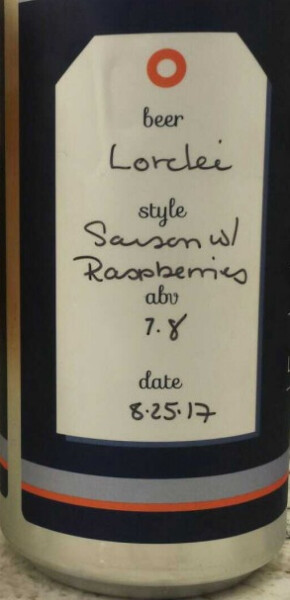 beer
Lorelei
style
Saison w/
Raspberries
abv
7.8
date
8.25.17